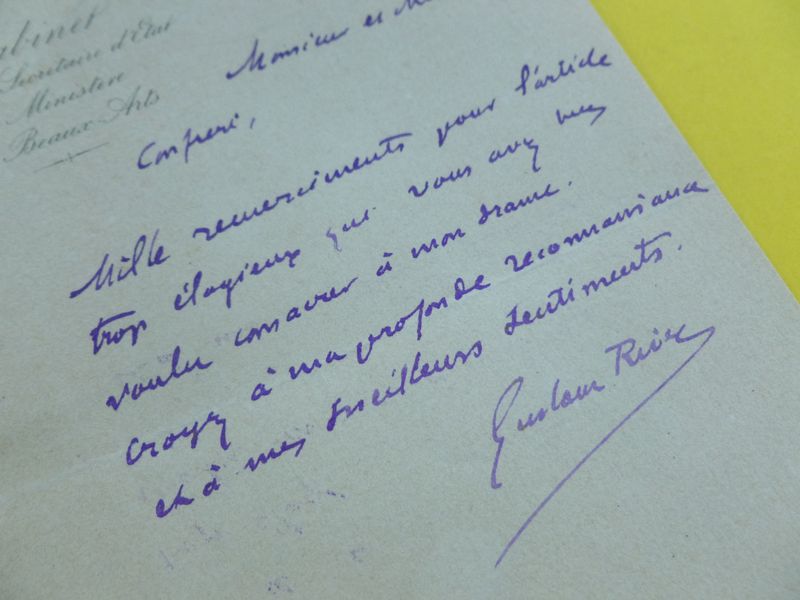 Cabinet
Secrétaire d'État
Ministère
Beaux-Arts
Monsieur et
Confrère,
Mille remerciments pour l'article
trop élogieux que vous avez
voulu consacrer à mon drame.
Croyez à ma profonde reconnaissance
et à mes meilleurs sentiments.
Gustave Rivet